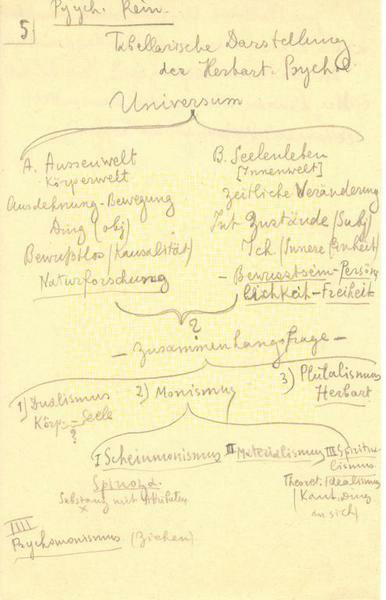 Psych. Rein.
5
Tabellarische Darstellung
der Herbart. Psych.
Universum
A. Aussenwelt
Körperwelt
Ausdehnung-Bewegung
Ding (obj)
Bewußtlos (Kausalität)
Naturforschung
B. Seelenleben
[Innenwelt]
Zeitliche Veränderung
Int Zustände (Subj)
Ich (Innere Einheit)
- Bewusstsein-Persön
lichkeit-Freiheit
?
- Zusammenhangsfrage -
1) Dualismus
Körp-Seele
?
2) Monismus
3) Pluralismus
Herbart
I Scheinmonismus
Spinoza.
Substanz mit Attributen
x
II Materialismus
III Spiritua-
lismus
Theoret. Idealismus
(Kant, Ding
an sich)
IIII
Psychomonismus (Ziehen)